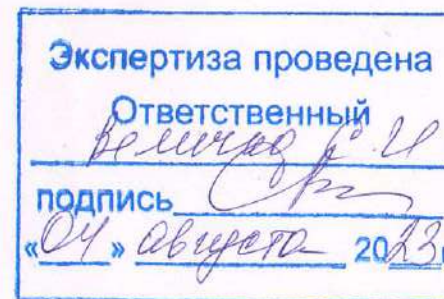 Экспертиза проведена
Ответственный
Величко С.И
подпись
«04» августа 2023г